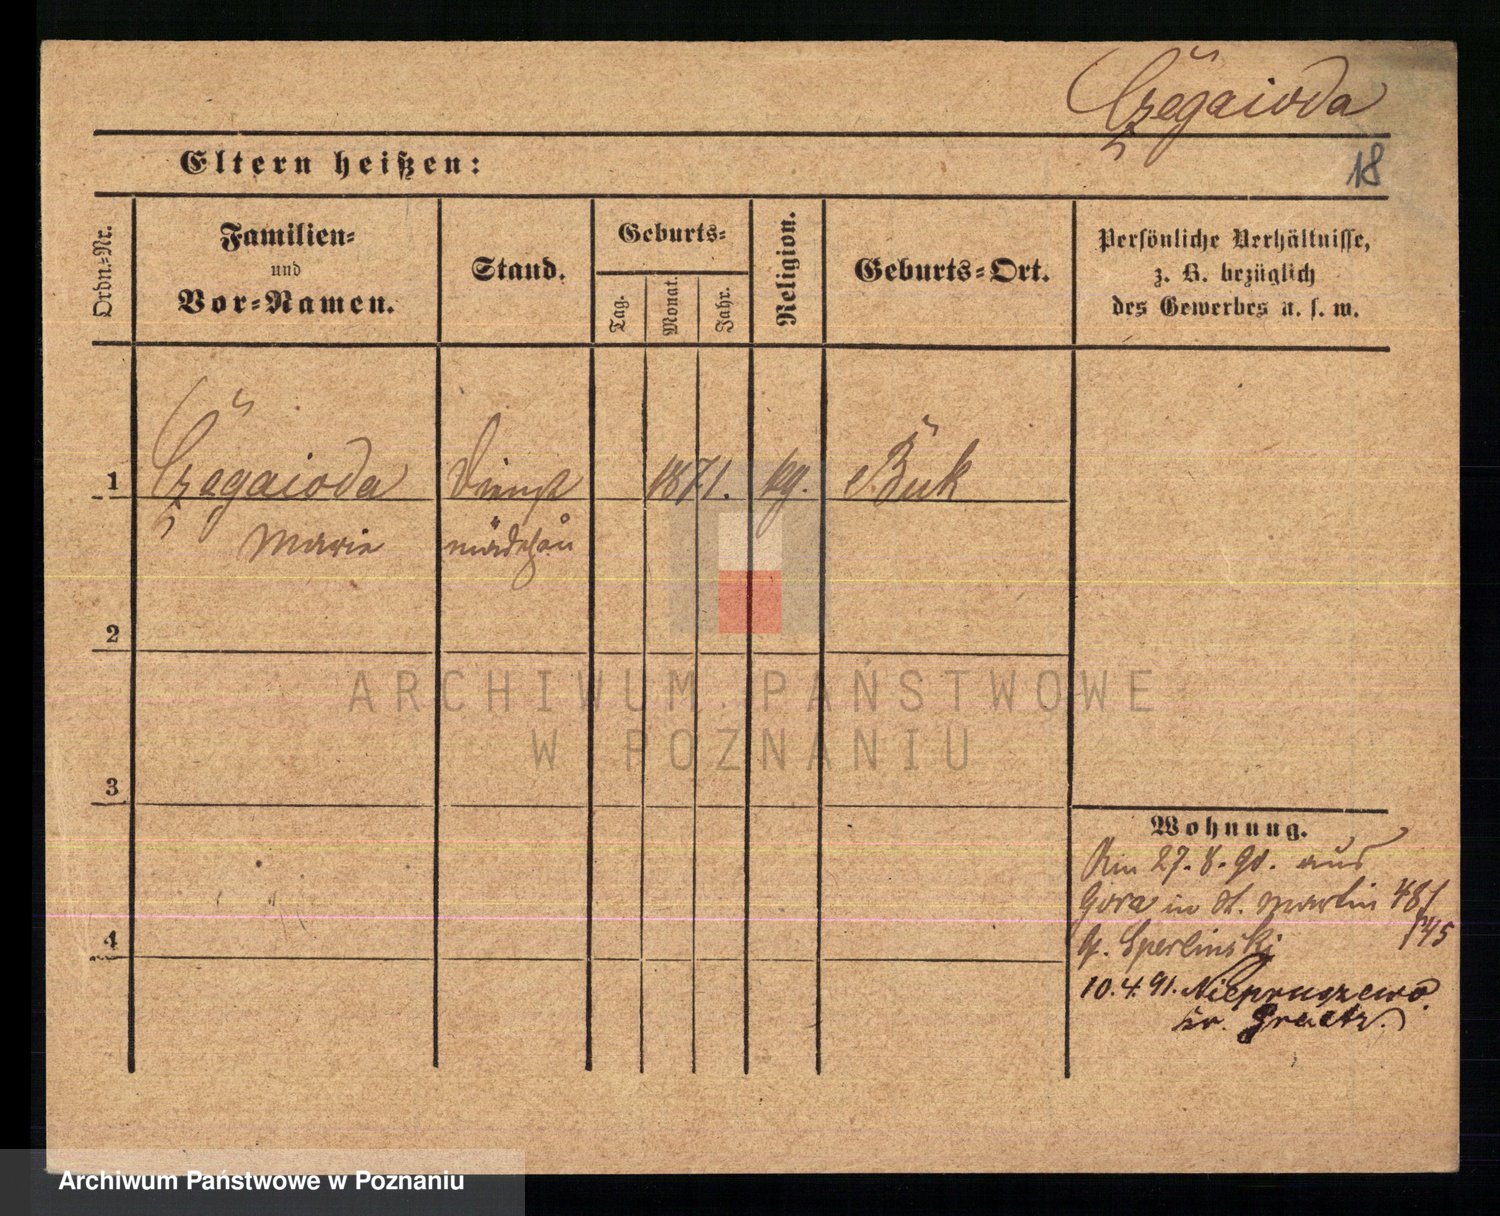 Czegaioda
18
Eltern heißen:
Ordn.-Nr.
Familien-
und
Vor-Namen.
Stand.
Geburts-
Tag.
Monat.
Jahr.
Religion.
Geburts-Ort.
Persönliche Verhältnisse,
z. B. bezüglich
des Gewerbes u. s. w.
1 Czegaioda Dienst 1871. kg. Buk
Marie mädchen
2
3
4
Wohnung.
Am 27.8.90. aus
Gora in St. Martin 48/
b. Sperlinski 45
10.4.91. Niepruszewo
Kr. Graetz.
ARCHIWUM PAŃSTWOWE
W POZNANIU
Archiwum Państwowe w Poznaniu